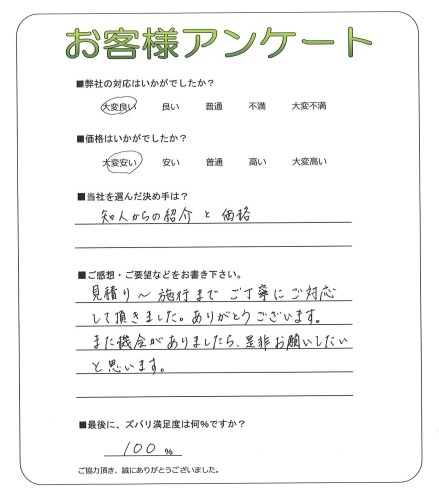 お客様アンケート
■弊社の対応はいかがでしたか？
大変良い 良い 普通 不満 大変不満
■価格はいかがでしたか？
大変安い 安い 普通 高い 大変高い
■当社を選んだ決め手は？
知人からの紹介 と 価格
■ご感想・ご要望などをお書き下さい。
見積り～施行まで ご丁寧にご対応
して頂きました。ありがとうございます。
また機会がありましたら、是非お願いしたい
と思います。
■最後に、ズバリ満足度は何％ですか？
100 ％
ご協力頂き、誠にありがとうございました。